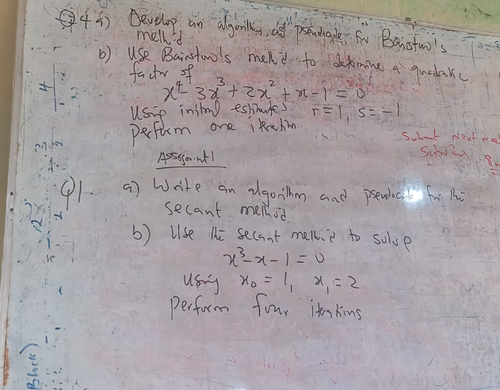 Q4 a) Develop an algorithm and pseudocode for Bairstow's
method
b) Use Bairstow's method to determine a quadratic
factor of
x⁴ - 3x³ + 2x² + x - 1 = 0
Using initial estimates r = 1, s = -1
perform one iteration
Submit next week
Assignment 1
Q1. a) Write an algorithm and pseudocode for the
secant method
b) Use the secant method to solve
x³ - x - 1 = 0
Using x₀ = 1, x₁ = 2
perform four iterations